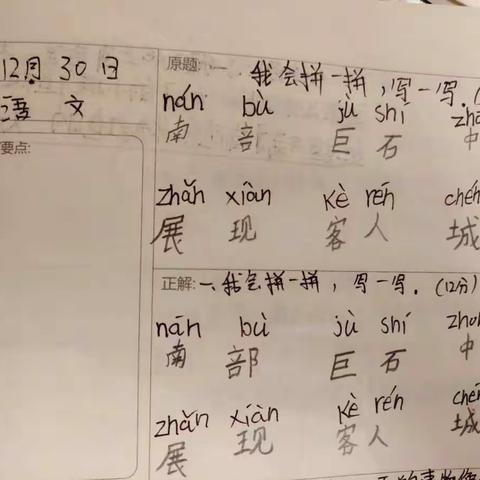 12月30日
语 文
要点:
原题: 一、我会拼一拼,写一写。(
nán bù jù shí zhō
南 部 巨 石 中
zhǎn xiàn kè rén chén
展 现 客 人 城
正解: 一、我会拼一拼,写一写。(12分)
nān bù jù shí zhon
南 部 巨 石 中
zhǎn xiàn kè rén ché
展 现 客 人 城